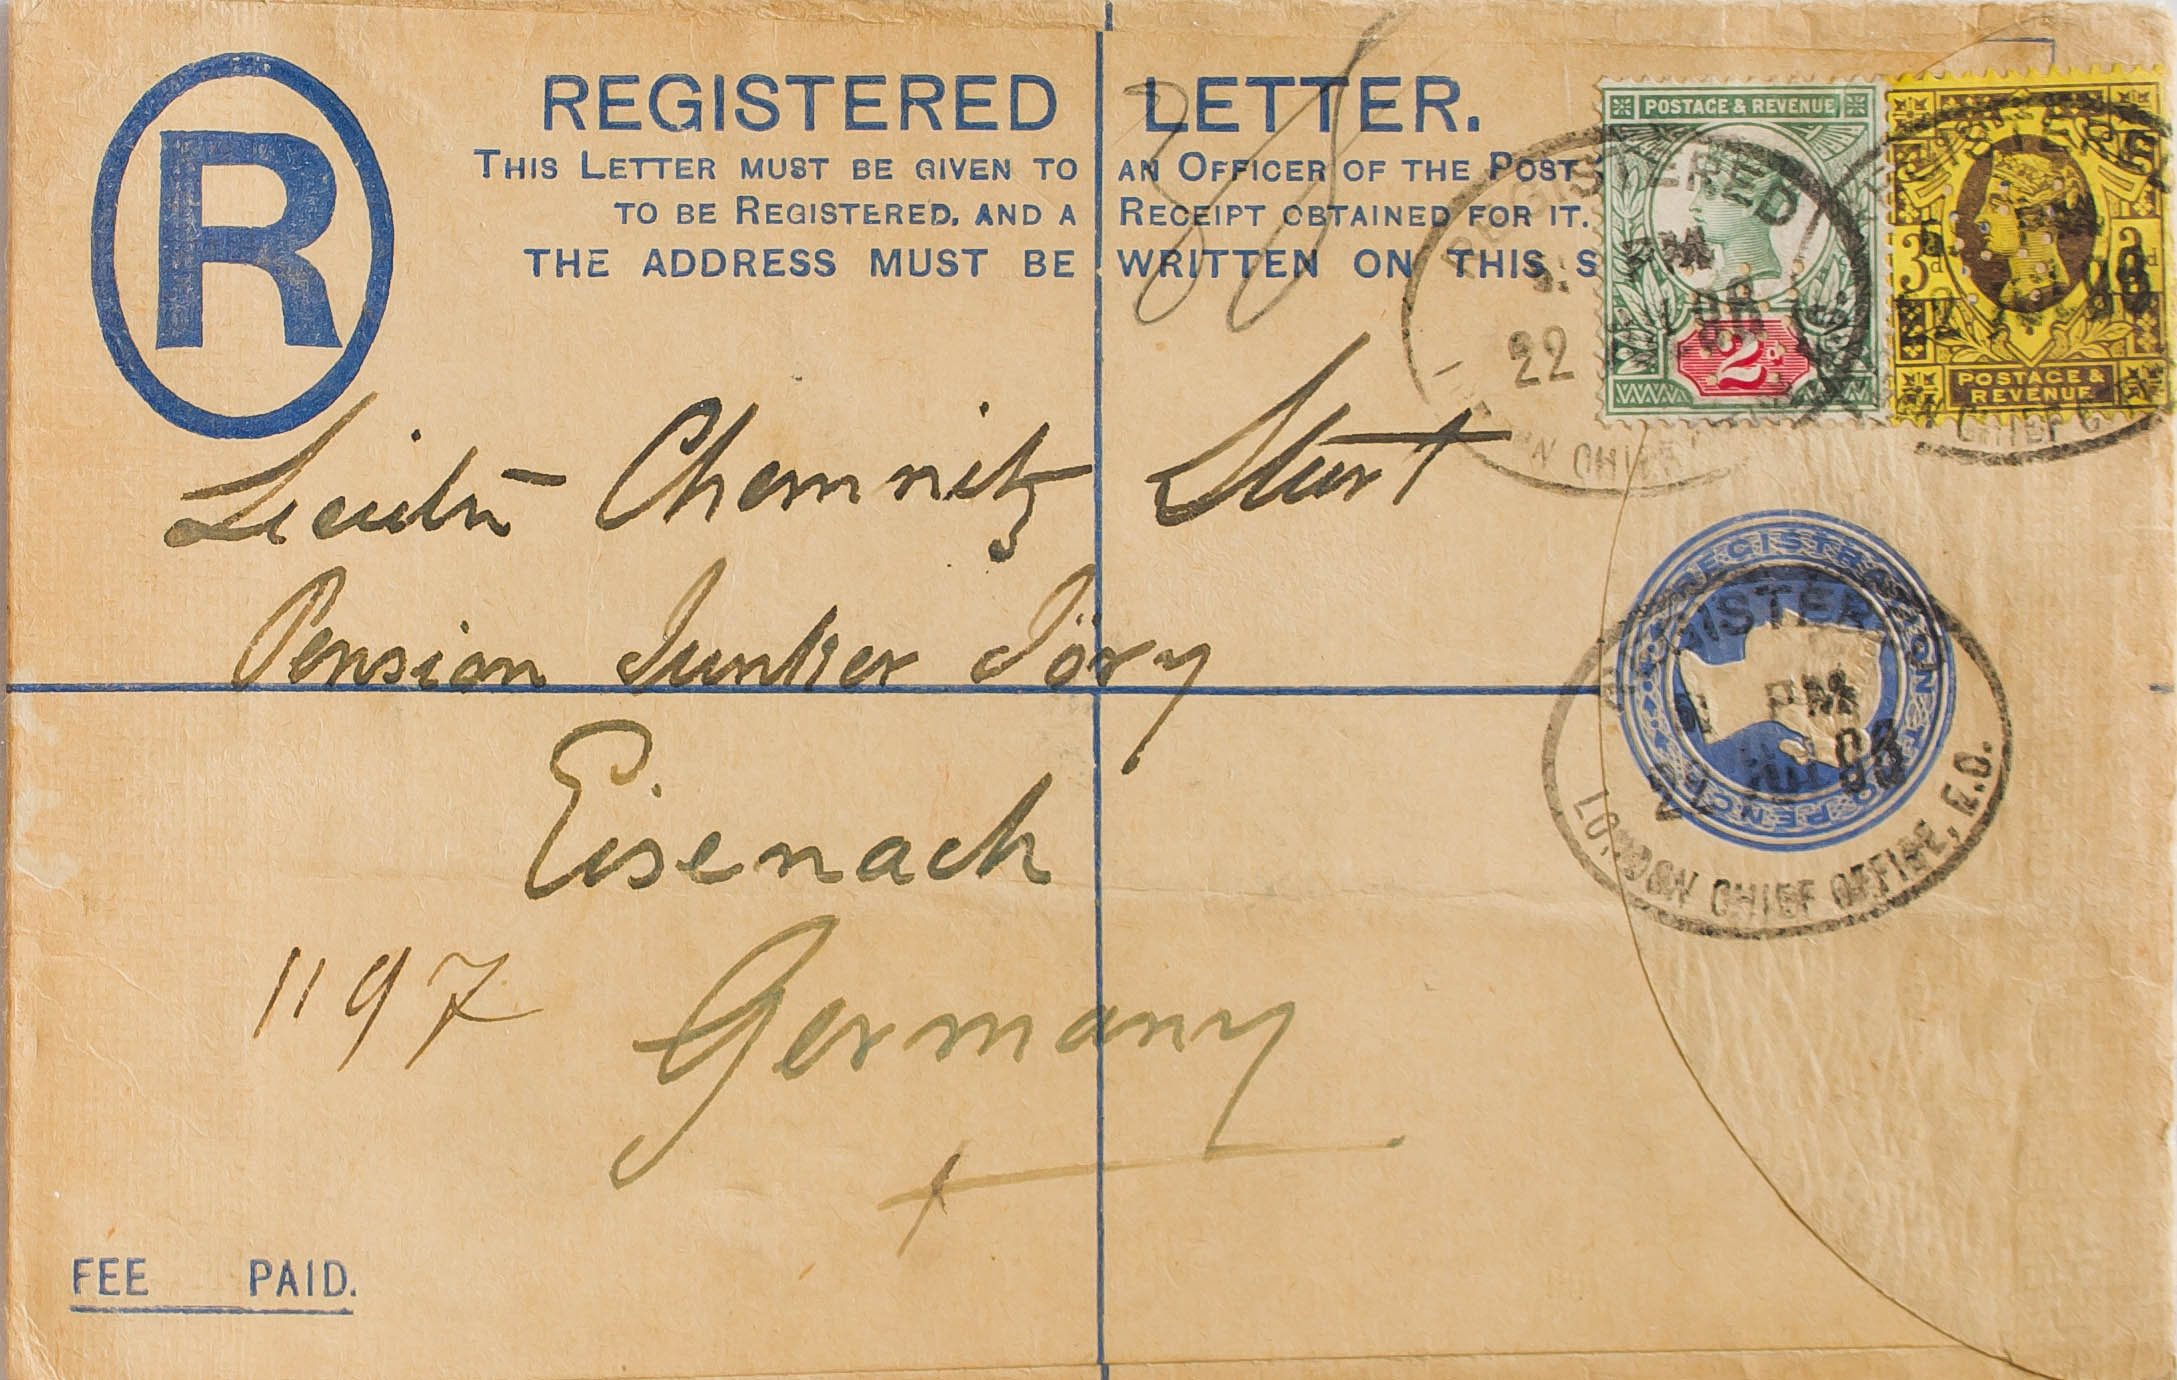 R
REGISTERED LETTER.
THIS LETTER MUST BE GIVEN TO AN OFFICER OF THE POST
TO BE REGISTERED, AND A RECEIPT OBTAINED FOR IT.
THE ADDRESS MUST BE WRITTEN ON THIS S
POSTAGE & REVENUE
2d
3d
POSTAGE &
REVENUE
REGISTERED
PM
22
98
CHIEF
Chemnitz
Pension Junker Jörg
Eisenach
Germany
1197
REGISTRATION
TWO PENCE
REGISTERED
PM
22 JU 98
LONDON CHIEF OFFICE, E.C.
FEE PAID.